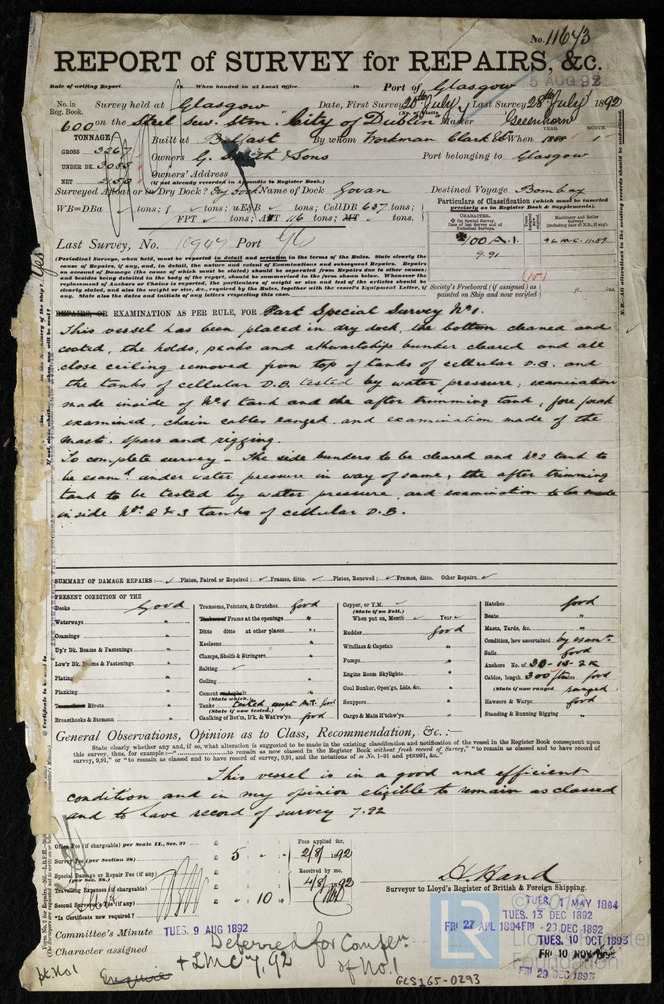 No. 11673
REPORT of SURVEY for REPAIRS, &c.
5 AUG 92
Date of writing Report When handed in at Local Office Port of Glasgow
No. in Reg. Book. Survey held at Glasgow Date, First Survey 20th July Last Survey 28th July 1892
600 on the Steel Screw Stmr. City of Dublin Master Greenhorn
TONNAGE Built at Belfast By whom Workman Clark & Co When 1888 1
GROSS 3267 Owners G. Smith & Sons Port belonging to Glasgow
UNDER DK. Owners' Address
NET (if not already recorded in Appendix to Register Book.)
Surveyed Afloat or in Dry Dock? Dry Dock Name of Dock Govan Destined Voyage Bombay
WB=DBa tons; f tons; uE&B tons; CellDB 657 tons;
FPT tons; APT 116 tons; MT tons.
Particulars of Classification (which must be inserted precisely as in Register Book & Supplements).
100 A.1.
9.91
Last Survey, No. Port
(Periodical Surveys, when held, must be reported in detail and seriatim in the terms of the Rules. State clearly the cause of Repairs, if any, and, in detail, the nature and extent of Examinations and subsequent Repairs. Repairs on account of Damage (the cause of which must be stated) should be separated from Repairs due to other causes; and besides being detailed in the body of the report, should be summarized in the form shown below. Whenever the replacement of Anchors or Chains is reported, the particulars of weight or size and test of the articles should be clearly stated, and also the weight or size, &c., required by the Rules, together with the vessel's Equipment Letter, if any. State also the dates and initials of any letters respecting this case.
Society's Freeboard (if assigned) as painted on Ship and now verified ft. ins.
REPAIRS, OR EXAMINATION AS PER RULE, FOR Part Special Survey No 1.
This vessel has been placed in dry dock, the bottom cleaned and
coated, the holds, peaks and athwartships bunker cleared and all
close ceiling removed from top of tanks of cellular D.B. and
the tanks of cellular D.B. tested by water pressure, examination
made inside of No 1 tank and the after trimming tank, fore peak
examined, chain cables ranged, and examination made of the
mast, spars and rigging.
To complete survey - The side bunkers to be cleared and No 2 tank to
be examd under water pressure in way of same, the after trimming
tank to be tested by water pressure, and examination to be made
inside Nos. 2 & 3 tanks of cellular D.B.
SUMMARY OF DAMAGE REPAIRS:- Plates, Faired or Repaired; Frames, ditto. Plates, Renewed; Frames, ditto. Other Repairs.
PRESENT CONDITION OF THE
Decks Good
Waterways "
Coamings "
Up'r Dk. Beams & Fastenings "
Low'r Dk. Beams & Fastenings "
Plating "
Planking
Rivets "
Breasthooks & Stemson "
Transoms, Pointers, & Crutches. Good
Frame at the openings "
Ditto ditto at other places "
Keelsons "
Clamps, Shelfs & Stringers "
Salting
Ceiling "
Cement (State which.) "
Tanks (State if now tested.) Tested except A.T. good
Caulking of Bot'm, D'k, & Wat'rw'ys good
Copper, or Y.M. (State if on Felt.)
When put on, Month Year
Rudder good
Windlass & Capstan "
Pumps "
Engine Room Skylights "
Coal Bunker, Open'gs, Lids, &c. "
Scuppers "
Cargo & Main H'tchw'ys "
Hatches good
Boats "
Masts, Yards, &c. "
Condition, how ascertained by examn.
Sails good
Anchors No. of 3B-1S-2K
Cables, length 300 good
(State if now ranged) ranged
Hawsers & Warps good
Standing & Running Rigging "
General Observations, Opinion as to Class, Recommendation, &c.:-
State clearly whether any, and if so, what alteration is suggested to be made in the existing classification and notification of the vessel in the Register Book consequent upon
this survey, thus, for example:—"to remain as now classed in the Register Book without fresh record of Survey," "to remain as classed and to have record of
survey, 9,91," or "to remain as classed and to have record of survey, 9,91, and the notations of ss No. 1-91 and ptND91, &c."
This vessel is in a good and efficient
condition and in my opinion eligible to remain as classed
and to have record of survey 7.92
Office Fee (if chargeable) per Scale II., Sec. 27 £
Survey Fee (per Section 28) £ 5 " "
Special Damage or Repair Fee (if any) (per Sec. 28.) £
Travelling Expenses (if chargeable) £
Second Survey Fee (if any) £ " 10 "
Fees applied for, 2/8/1892
Received by me, 4/8/1892
*Is Certificate now required?
D. Hand
Surveyor to Lloyd's Register of British & Foreign Shipping.
Committee's Minute TUES. 9 AUG 1892
Character assigned Deferred for Complen of No. 1
+ LMC 7,92
TUES. 1 MAY 1894
TUES. 13 DEC 1892
FRI 27 APL 1894 FRI - 23 DEC 1892
TUES. 10 OCT 1893
FRI. 10 NOV 1893
FRI 29 DEC 1893
GLS165-0293
LR
Foundation